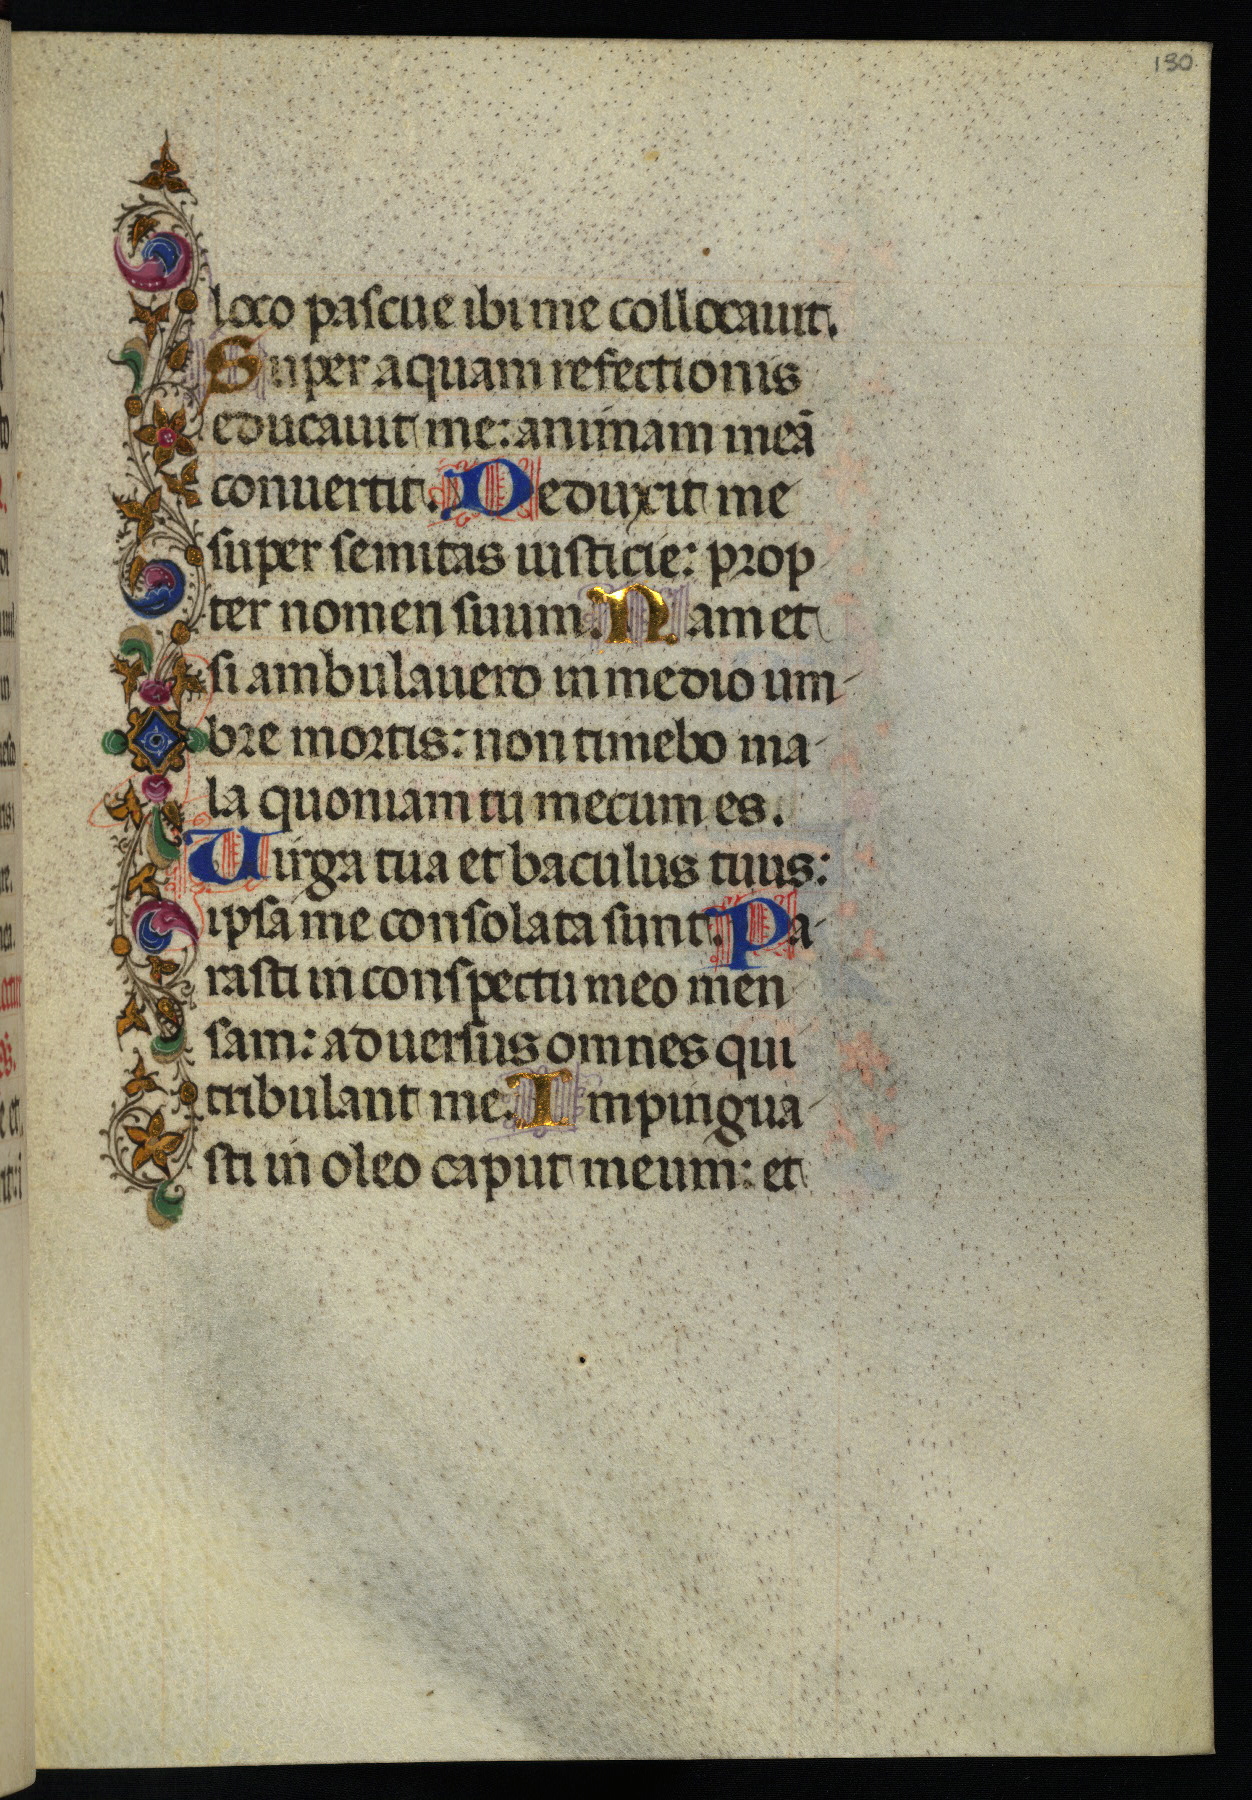 130
loco pascue ibi me collocauit.
Super aquam refectionis
educauit me: animam meā
conuertit. Deduxit me
super semitas iusticie: prop
ter nomen suum. Nam et
si ambulauero in medio um-
bre mortis: non timebo ma-
la quoniam tu mecum es.
Uirga tua et baculus tuus:
ipsa me consolata sunt. Pa-
rasti in conspectu meo men
sam: aduersus omnes qui
tribulant me. Impingua-
sti in oleo caput meum: et